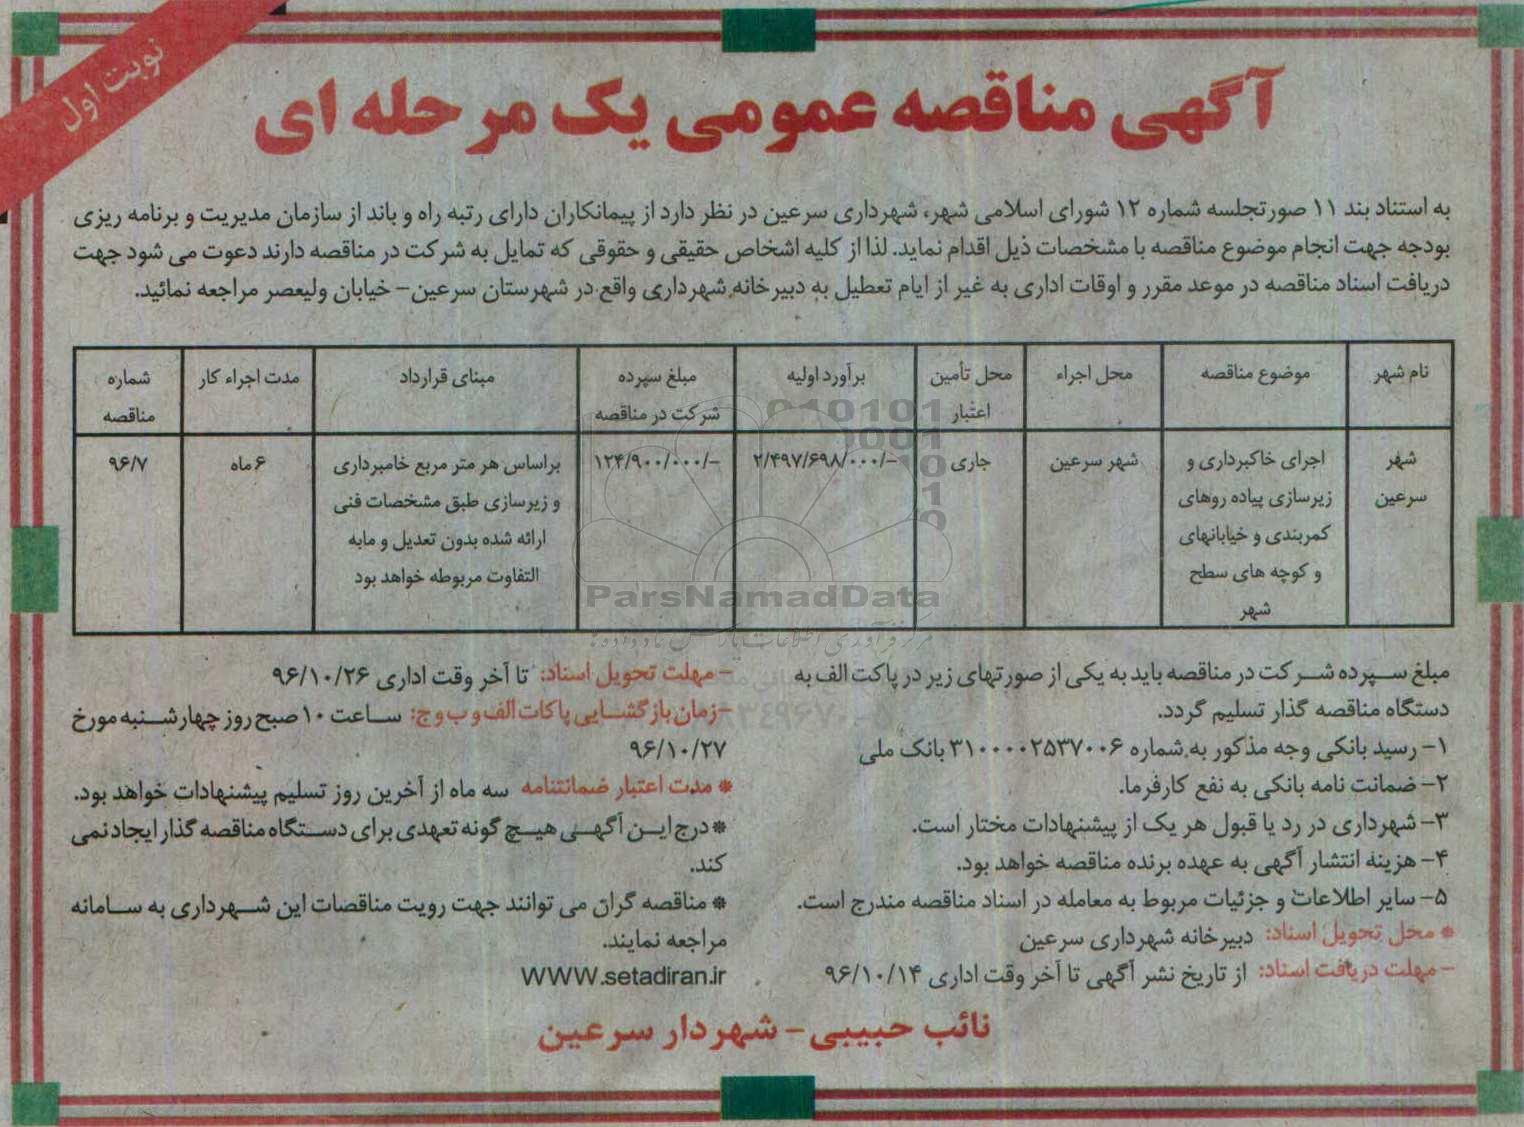 نوبت اول
آگهی مناقصه عمومی یک مرحله ای
به استناد بند ۱۱ صورتجلسه شماره ۱۲ شورای اسلامی شهر، شهرداری سرعین در نظر دارد از پیمانکاران دارای رتبه راه و باند از سازمان مدیریت و برنامه ریزی
بودجه جهت انجام موضوع مناقصه با مشخصات ذیل اقدام نماید. لذا از کلیه اشخاص حقیقی و حقوقی که تمایل به شرکت در مناقصه دارند دعوت می شود جهت
دریافت اسناد مناقصه در موعد مقرر و اوقات اداری به غیر از ایام تعطیل به دبیرخانه شهرداری واقع در شهرستان سرعین- خیابان ولیعصر مراجعه نمائید.
نام شهر
موضوع مناقصه
محل اجراء
محل تأمین
اعتبار
برآورد اولیه
مبلغ سپرده
شرکت در مناقصه
مبنای قرارداد
مدت اجراء کار
شماره
مناقصه
شهر
سرعین
اجرای خاکبرداری و
زیرسازی پیاده روهای
کمربندی و خیابانهای
و کوچه های سطح
شهر
شهر سرعین
جاری
۲/۴۹۷/۶۹۸/۰۰۰/-
۱۲۴/۹۰۰/۰۰۰/-
براساس هر متر مربع خامبرداری
و زیرسازی طبق مشخصات فنی
ارائه شده بدون تعدیل و مابه
التفاوت مربوطه خواهد بود
۶ ماه
۹۶/۷
ParsNamadData
مبلغ سپرده شرکت در مناقصه باید به یکی از صورتهای زیر در پاکت الف به
دستگاه مناقصه گذار تسلیم گردد.
۱- رسید بانکی وجه مذکور به شماره ۳۱۰۰۰۰۲۵۳۷۰۰۶ بانک ملی
۲- ضمانت نامه بانکی به نفع کارفرما.
۳- شهرداری در رد یا قبول هر یک از پیشنهادات مختار است.
۴- هزینه انتشار آگهی به عهده برنده مناقصه خواهد بود.
۵- سایر اطلاعات و جزئیات مربوط به معامله در اسناد مناقصه مندرج است.
* محل تحویل اسناد: دبیرخانه شهرداری سرعین
- مهلت دریافت اسناد: از تاریخ نشر آگهی تا آخر وقت اداری ۹۶/۱۰/۱۴
- مهلت تحویل اسناد: تا آخر وقت اداری ۹۶/۱۰/۲۶
-زمان بازگشایی پاکات الف و ب و ج: ساعت ۱۰ صبح روز چهارشنبه مورخ
۹۶/۱۰/۲۷
* مدت اعتبار ضمانتنامه سه ماه از آخرین روز تسلیم پیشنهادات خواهد بود.
* درج این آگهی هیچ گونه تعهدی برای دستگاه مناقصه گذار ایجاد نمی
کند.
* مناقصه گران می توانند جهت رویت مناقصات این شهرداری به سامانه
مراجعه نمایند.
WWW.setadiran.ir
نائب حبیبی - شهردار سرعین